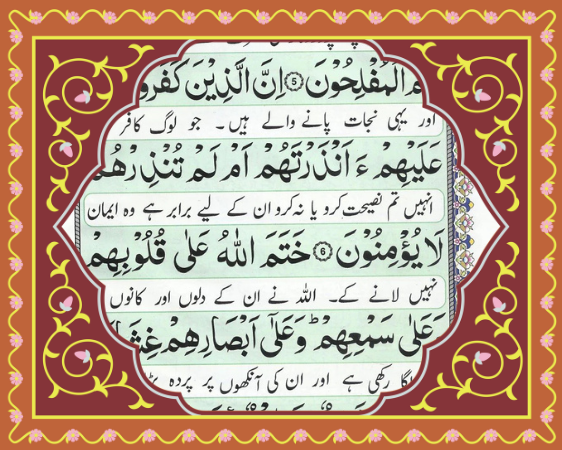 الْمُفْلِحُوْنَ ۝5 اِنَّ الَّذِيْنَ كَفَرُو
اور یہی نجات پانے والے ہیں۔ جو لوگ کافر
عَلَيْهِمْ ءَاَنْذَرْتَهُمْ اَمْ لَمْ تُنْذِرْهُمْ
انہیں تم نصیحت کرو یا نہ کرو ان کے لیے برابر ہے وہ ایمان
لَا يُؤْمِنُوْنَ ۝6 خَتَمَ اللّٰهُ عَلٰى قُلُوْبِهِمْ
نہیں لانے کے۔ اللہ نے ان کے دلوں اور کانوں
وَعَلٰى سَمْعِهِمْ ؕ وَعَلٰٓى اَبْصَارِهِمْ غِشَا
لگا رکھی ہے اور ان کی آنکھوں پر پردہ